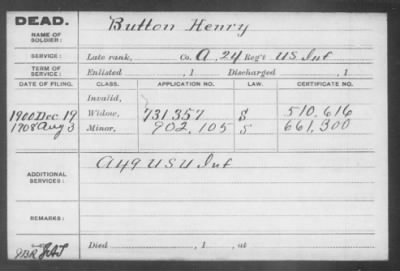 DEAD.
NAME OF SOLDIER: Button Henry
SERVICE: Late rank, Co. A, 24 Reg't U.S. Inf
TERM OF SERVICE: Enlisted , 1 Discharged , 1
DATE OF FILING. CLASS. APPLICATION NO. LAW. CERTIFICATE NO.
Invalid,
1900 Dec 19 Widow, 731357 8 510,616
1908 Aug 3 Minor, 902,105 5 661,300
ADDITIONAL SERVICES: A 49 U S V Inf
REMARKS:
Died , 1 , at